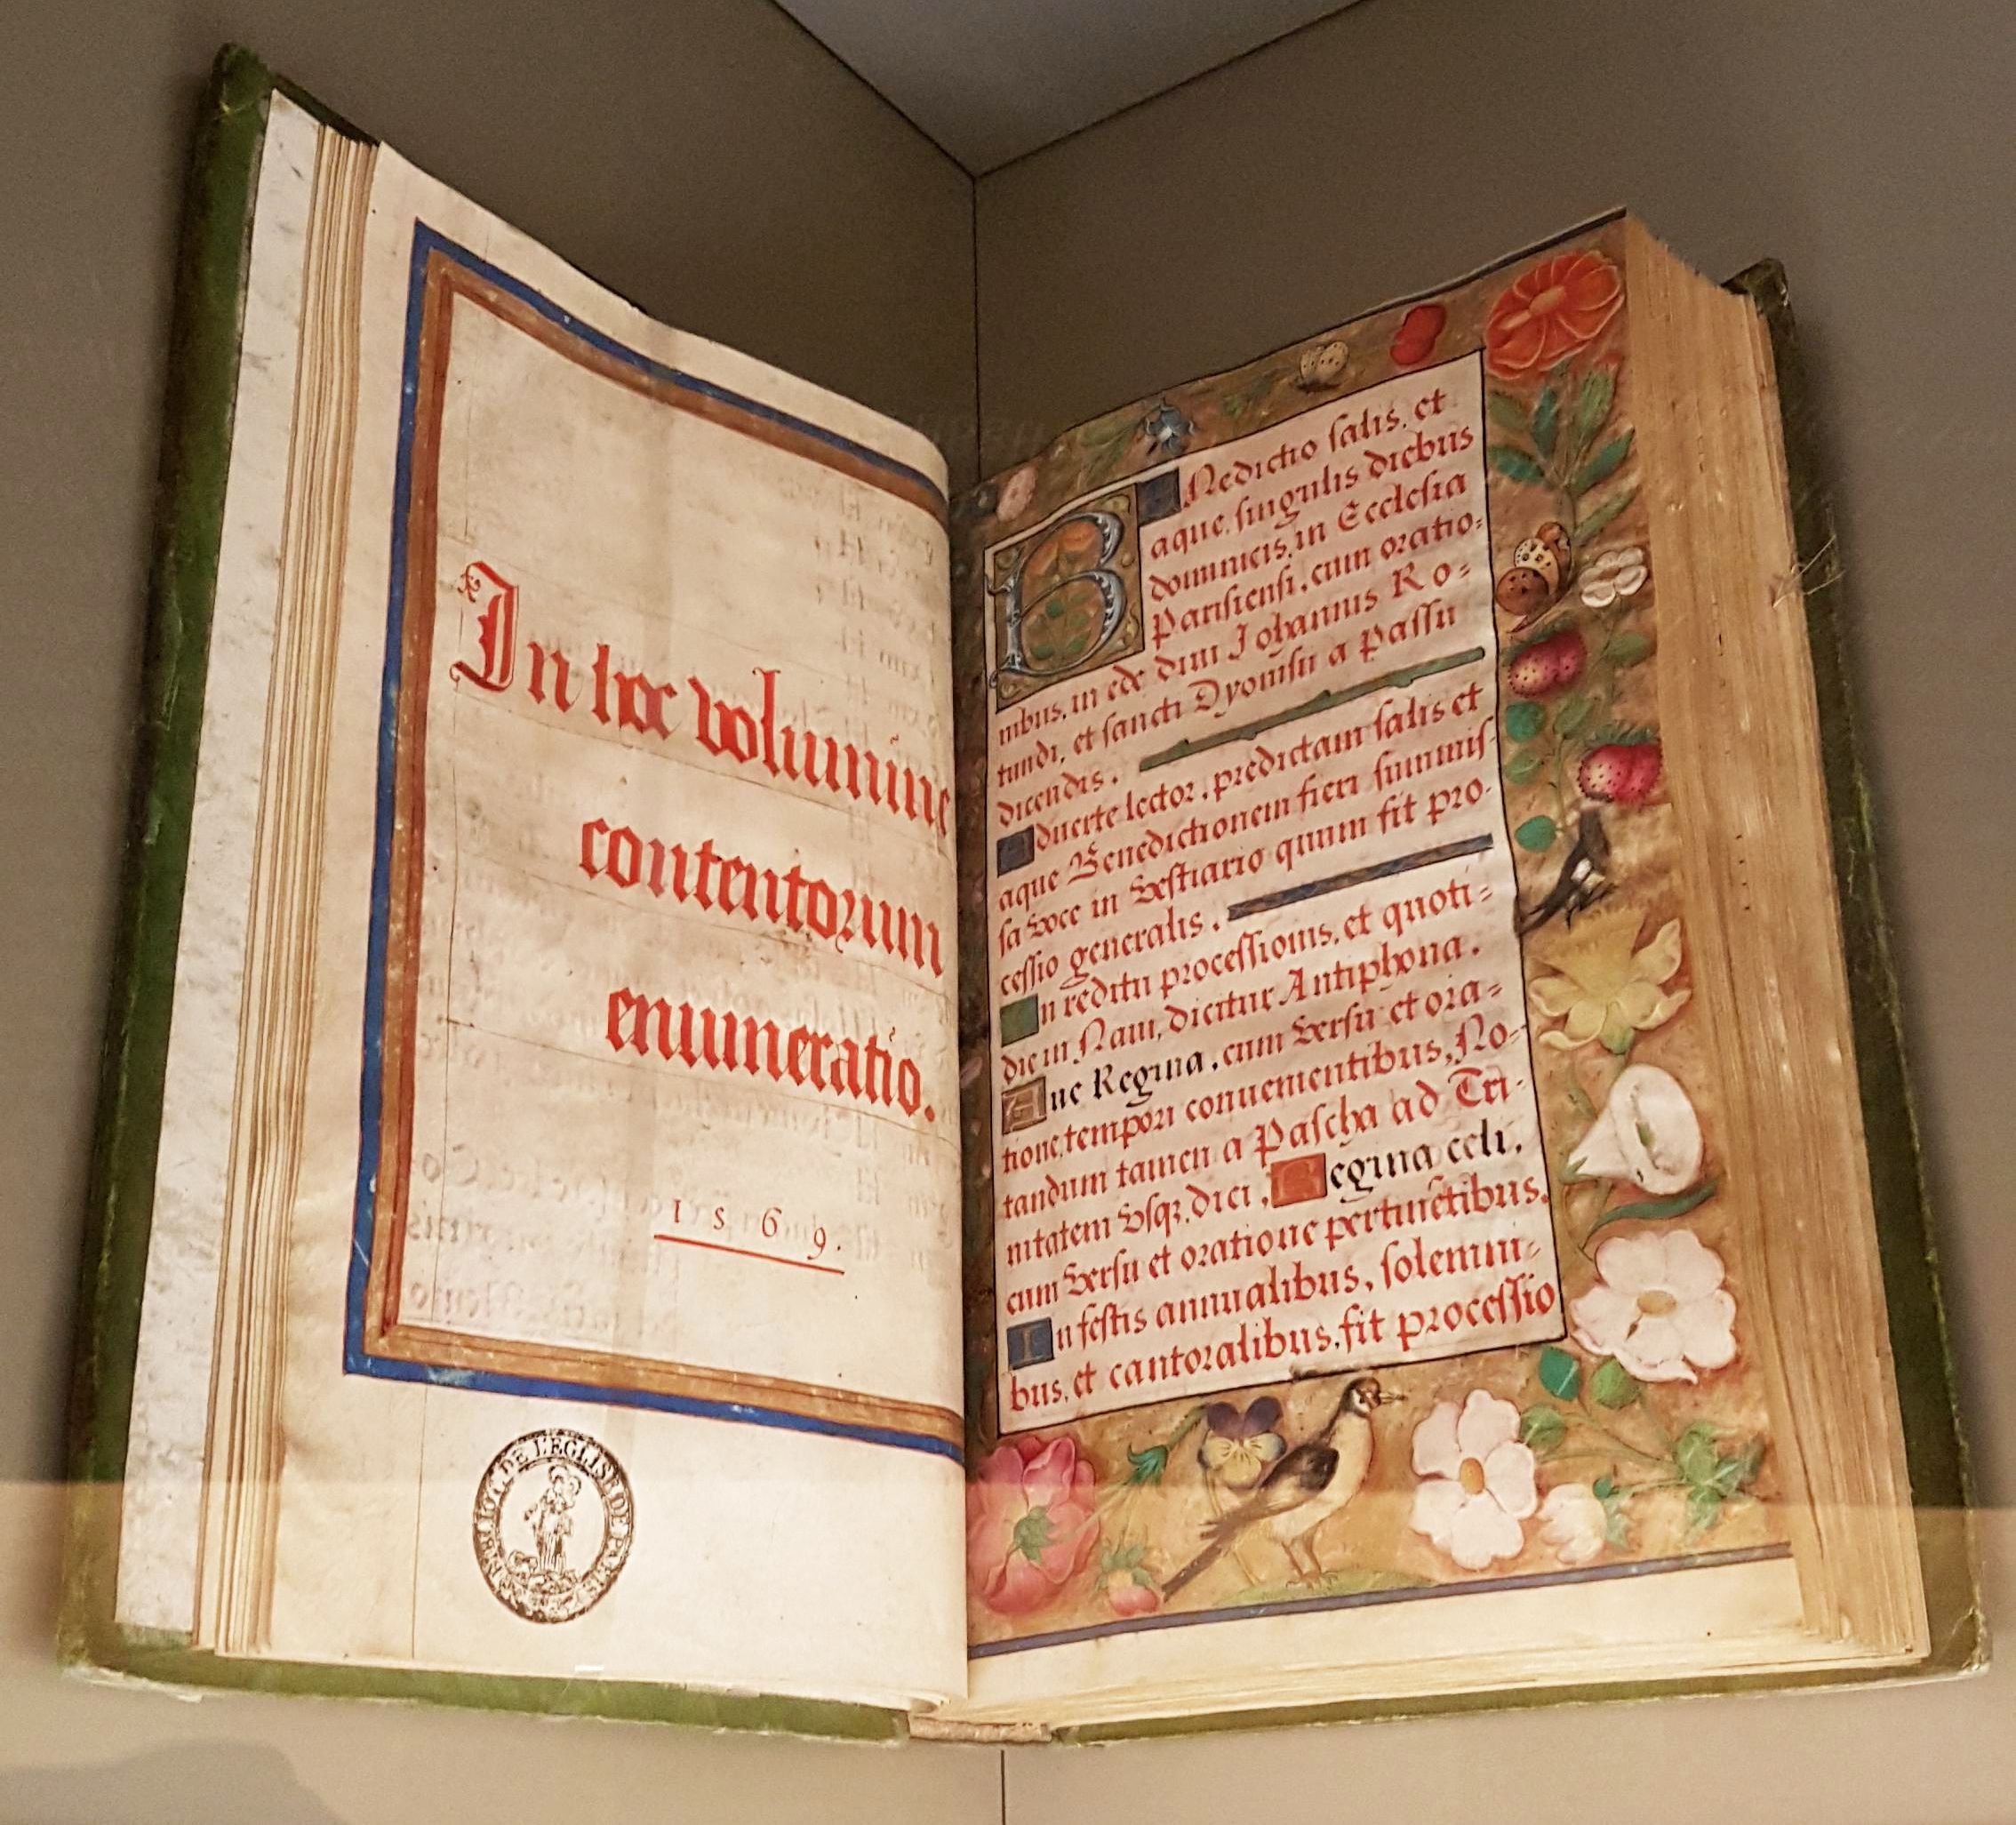 In hoc volumine
contentorum
enumeratio.
1569.
BIBLIOT. DE L'EGLISE DE PARIS
BENedictio salis, et
aque, singulis diebus
dominicis, in Ecclesia
Parisiensi, cum oratio=
nibus, in ede divi Johannis Ro=
tundi, et sancti Dyonisii a passu
dicendis.
Aduerte lector, predictam salis et
aque Benedictionem fieri summis=
sa voce in vestiario quum fit pro=
cessio generalis.
In reditu processionis, et quoti=
die in Naui, dicitur Antiphona.
Aue Regina, cum versu et ora=
tione, tempori conuenientibus, No=
tandum tamen a Pascha ad Tri=
nitatem vsq;, dici, Regina celi,
cum versu et oratione pertinentibus.
In festis annualibus, solemni=
bus, et cantoralibus, fit processio